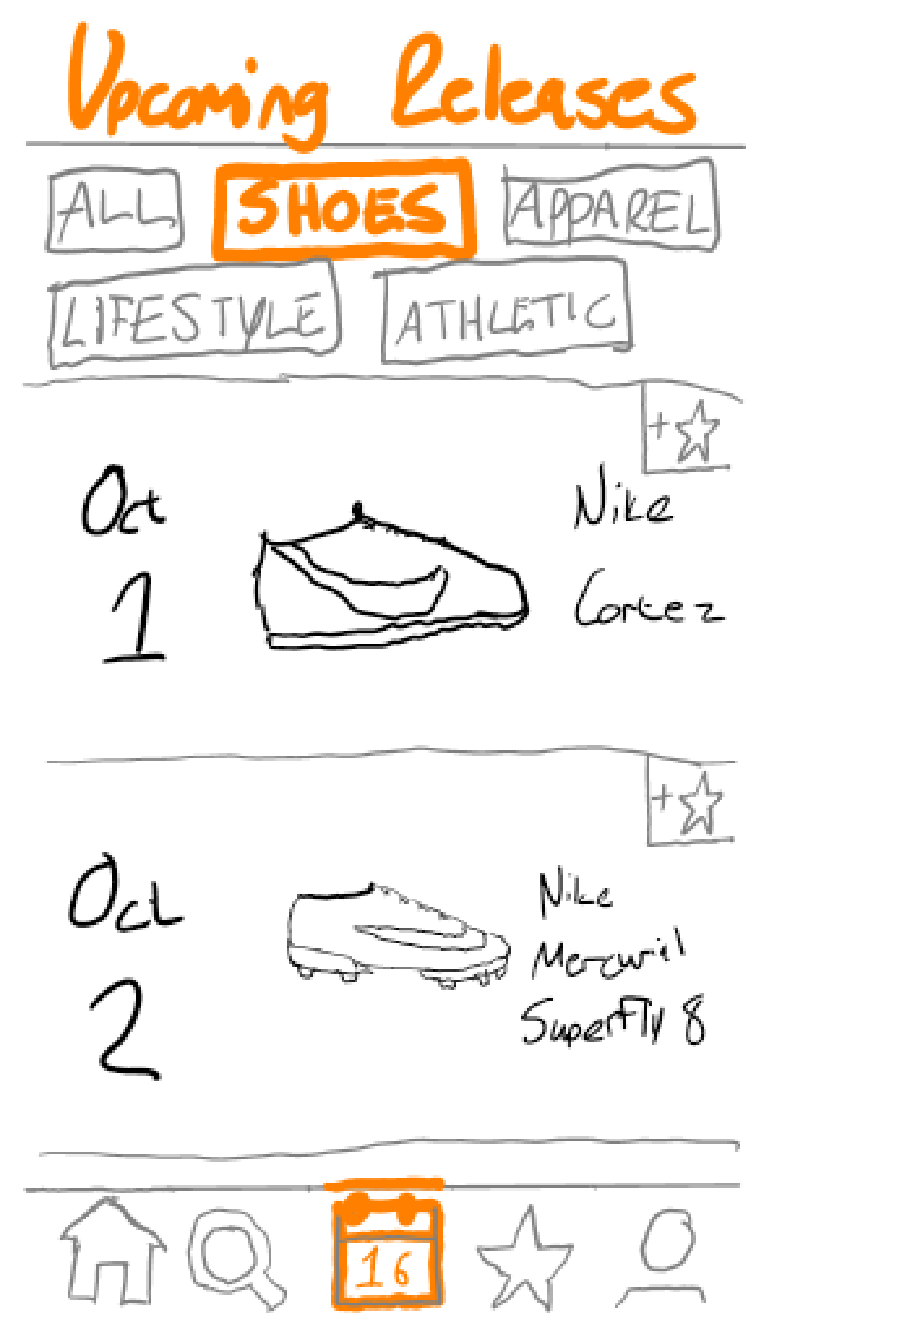 Upcoming Releases
ALL SHOES APPAREL
LIFESTYLE ATHLETIC
+
Oct
1
Nike
Cortez
+
Oct
2
Nike
Mercuril
Superfly 8
16